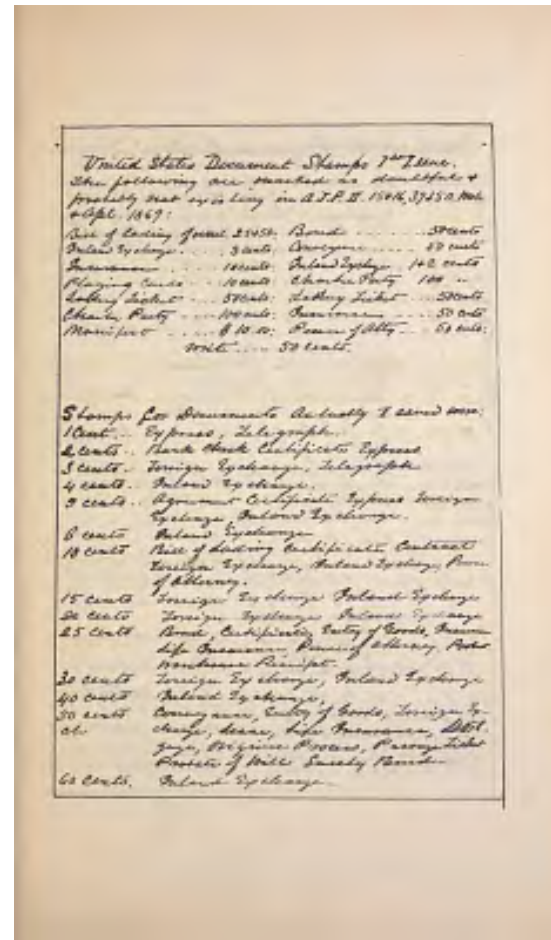 United States Document Stamps 1st Issue.
The following are marked as doubtful &
probably not existing in A.J.P. II. 15 & 16, 39 & 50. Mch
& Apl. 1869:
Bill of Lading 25 & 50. Bond ...... 50 cents
Inland Exchange .... 3 cents: Conveyance .... 50 cents
Insurance .... 10 cents: Inland Exchge 1 & 2 cents
Playing Cards ... 10 cents: Charter Party 100 "
Lottery Ticket .... 50 cents: Lottery Ticket ... 50 cents
Charter Party .... 100 cents: Insurance .... 50 cents
Manifest ..... $10.00: Power of Atty .... 50 cents:
.... 50 cents.
Stamps for Documents actually issued were:
1 Cent ... Express, Telegraph.
2 cents .. Bank Check Certificate Express
3 cents .. Foreign Exchange, Telegraph
4 cents .. Inland Exchange.
5 cents .. Agreement Certificate Express Foreign
Exchange Inland Exchange.
6 cents Inland Exchange
10 cents Bill of Lading Certificate Contract
Foreign Exchange, Inland Exchange, Power
of Attorney.
15 cents Foreign Exchange Inland Exchange
20 cents Foreign Exchange Inland Exchange
25 cents Bond, Certificate, Entry of Goods, Insurance
Life Insurance, Power of Attorney,
Warehouse Receipt.
30 cents Foreign Exchange, Inland Exchange
40 cents Inland Exchange,
50 cents Conveyance, Entry of Goods, Foreign Ex-
change, Lease, Life Insurance,
gage, Original Process, Passage Ticket
Probate of Will Surety Bond
60 cents. Inland Exchange.